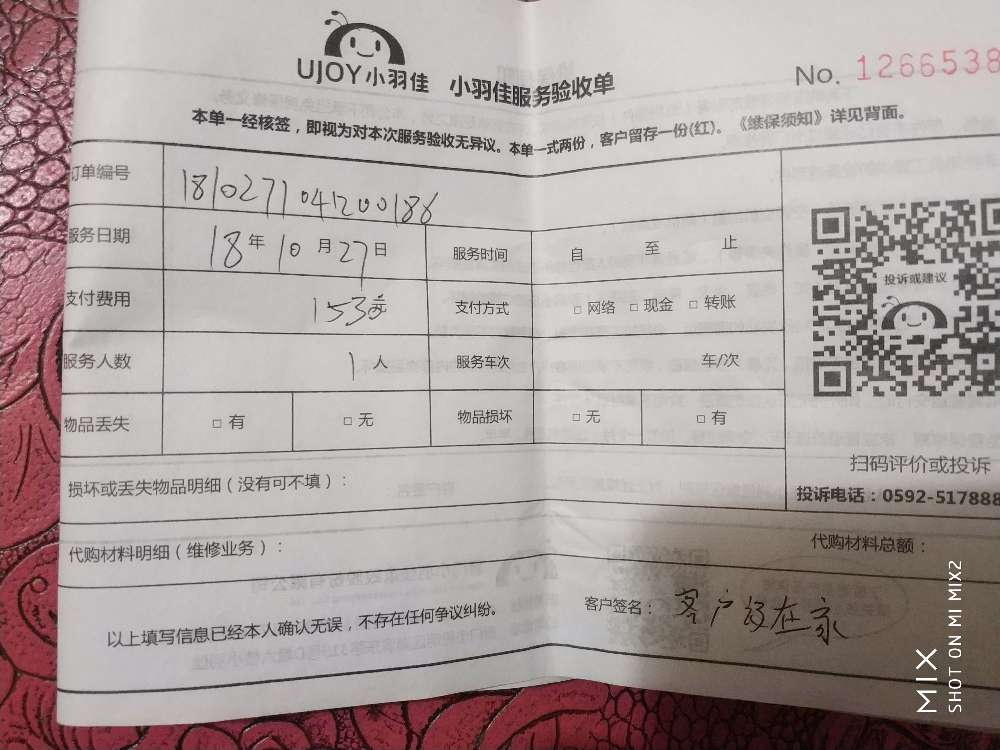 UJOY小羽佳 小羽佳服务验收单 No. 1266538
本单一经核签，即视为对本次服务验收无异议。本单一式两份，客户留存一份(红)。《维保须知》详见背面。
订单编号 1810271041200188
服务日期 18年10月27日 服务时间 自 至 止
支付费用 153元 支付方式 □ 网络 □ 现金 □ 转账
服务人数 1人 服务车次 车/次
物品丢失 □ 有 □ 无 物品损坏 □ 无 □ 有
投诉或建议
扫码评价或投诉
投诉电话：0592-517888
损坏或丢失物品明细（没有可不填）：
代购材料明细（维修业务）： 代购材料总额：
以上填写信息已经本人确认无误，不存在任何争议纠纷。 客户签名：客户没在家
MIX
SHOT ON MI MIX2